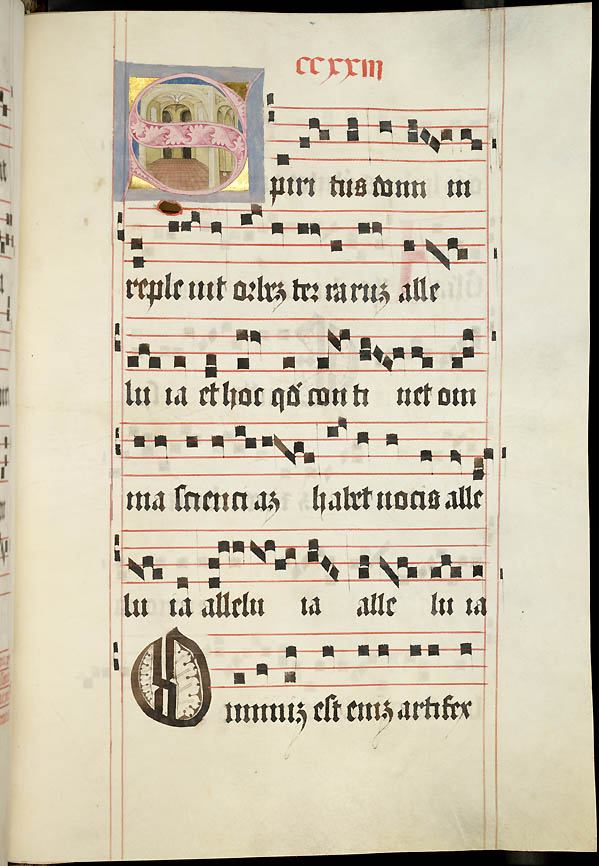 CCXXIII
Spiri tus domi ni
reple uit orbeʒ ter raruʒ alle
lu ia et hoc qd̛ con ti net om
nia scienci aʒ habet uocis alle
lu ia allelu ia alle lu ia
Omniuʒ est eniʒ artifex